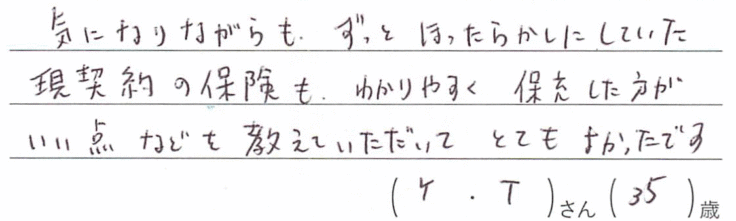 気になりながらも、ずっとほったらかしにしていた
現契約の保険も、わかりやすく 保充した方が
いい点などを教えていただいて とてもよかったです
(Y.T)さん(35)歳